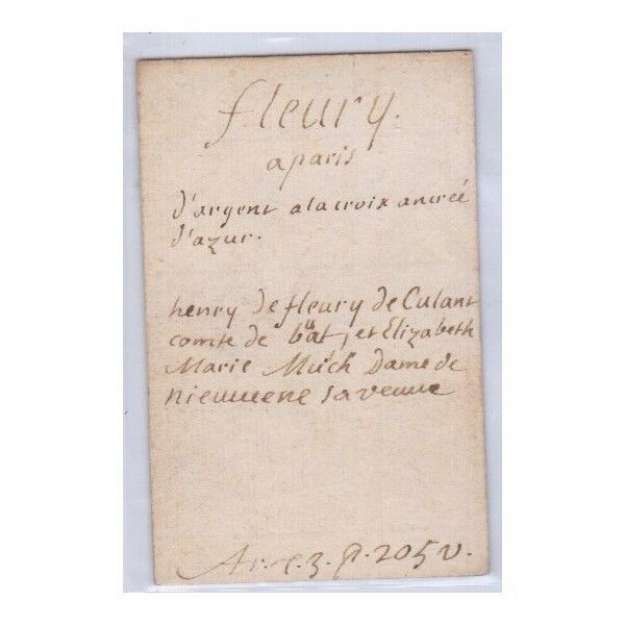 fleury.
a paris
d'argent a la croix ancreé
d'azur.
henry de fleury de Culant
comte de buat, et Elizabeth
Marie Müch Dame de
sa veuue
Ar. 3. 205 v.